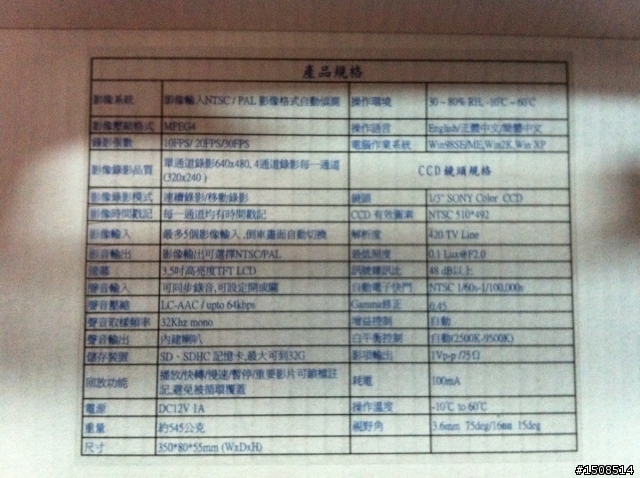 產品規格
影像系統 影像輸入NTSC / PAL 影像格式自動偵測 操作環境 30~80% RH, -10℃~60℃
影像壓縮格式 MPEG4 操作語言 English/正體中文/簡體中文
錄影張數 10FPS/ 20FPS/30FPS 電腦作業系統 Win98SE/ME,Win2K,Win XP
影像錄影品質 單通道錄影640x480, 4通道錄影每一通道 CCD鏡頭規格
(320x240 )
影像錄影模式 連續錄影/移動錄影 鏡頭 1/3" SONY Color CCD
影像時間戳記 每一通道均有時間戳記 CCD 有效畫素 NTSC 510*492
影像輸入 最多5個影像輸入 ,倒車畫面自動切換 解析度 420 TV Line
影音輸出 影像輸出可選擇NTSC/PAL 最低照度 0.1 Lux@F2.0
螢幕 3.5吋高亮度TFT LCD 訊號雜訊比 48 dB以上
聲音輸入 可同步錄音,可設定開或關 自動電子快門 NTSC 1/60s-1/100,000s
聲音壓縮 LC-AAC / upto 64kbps Gamma修正 0.45
聲音取樣頻率 32Khz mono 增益控制 自動
聲音輸出 內建喇叭 白平衡控制 自動(2500K-9500K)
儲存裝置 SD、SDHC 記憶卡,最大可到32G 影項輸出 1Vp-p /75Ω
回放功能 播放/快轉/慢速/暫停/重要影片可鎖檔註 耗電 100mA
記,避免被循環覆蓋
電源 DC12V 1A 操作溫度 -10℃ to 60℃
重量 約545公克 視野角 3.6mm 75deg/16mm 15deg
尺寸 350*80*55mm (WxDxH)
#1508514